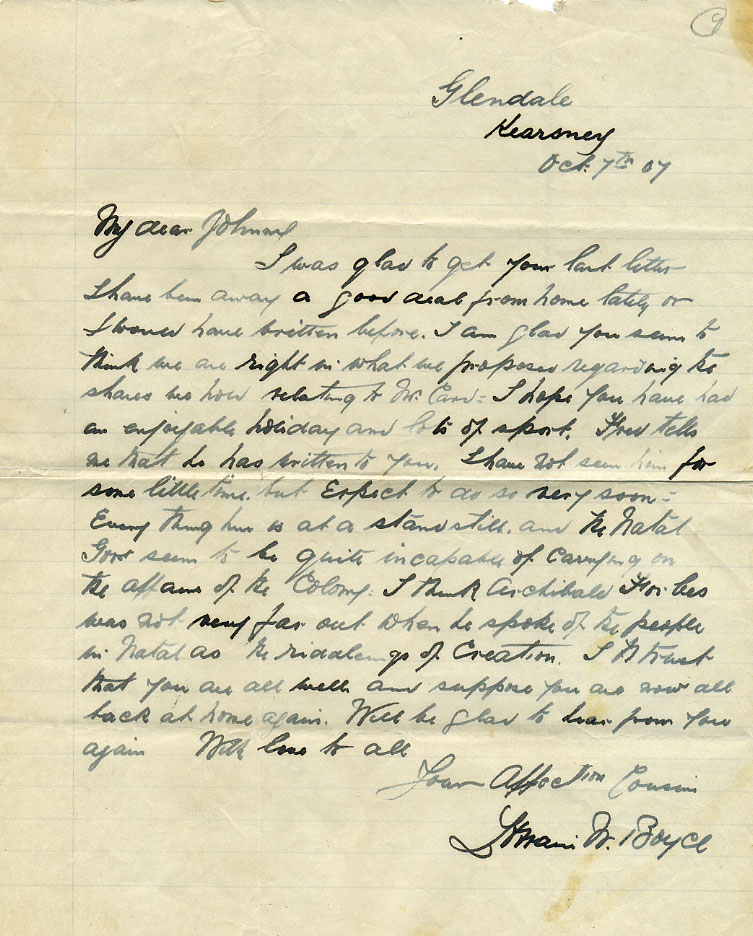 9
Glendale
Kearsney
Oct. 7th 07
My dear
I was glad to get your last letter
I have been away a good deal from home lately or
I would have written before. I am glad you seem to
think we are right in what we proposed regarding the
shares we hold relating to Mr. - I hope you have had
an enjoyable holiday and lots of sport. Fred tells
me that he has written to you. I have not seen him for
some little time. but Expect to do so very soon -
Every thing here is at a standstill. and the Natal
Govt seem to be quite incapable of Carrying on
the affairs of the Colony. I think Archibald Forbes
was not very far out when he spoke of the people
in Natal as the riddlings of Creation. I trust
that you are all well and suppose you are now all
back at home again. Will be glad to hear from you
again With love to all
Your Affection Cousin
W. Boyce